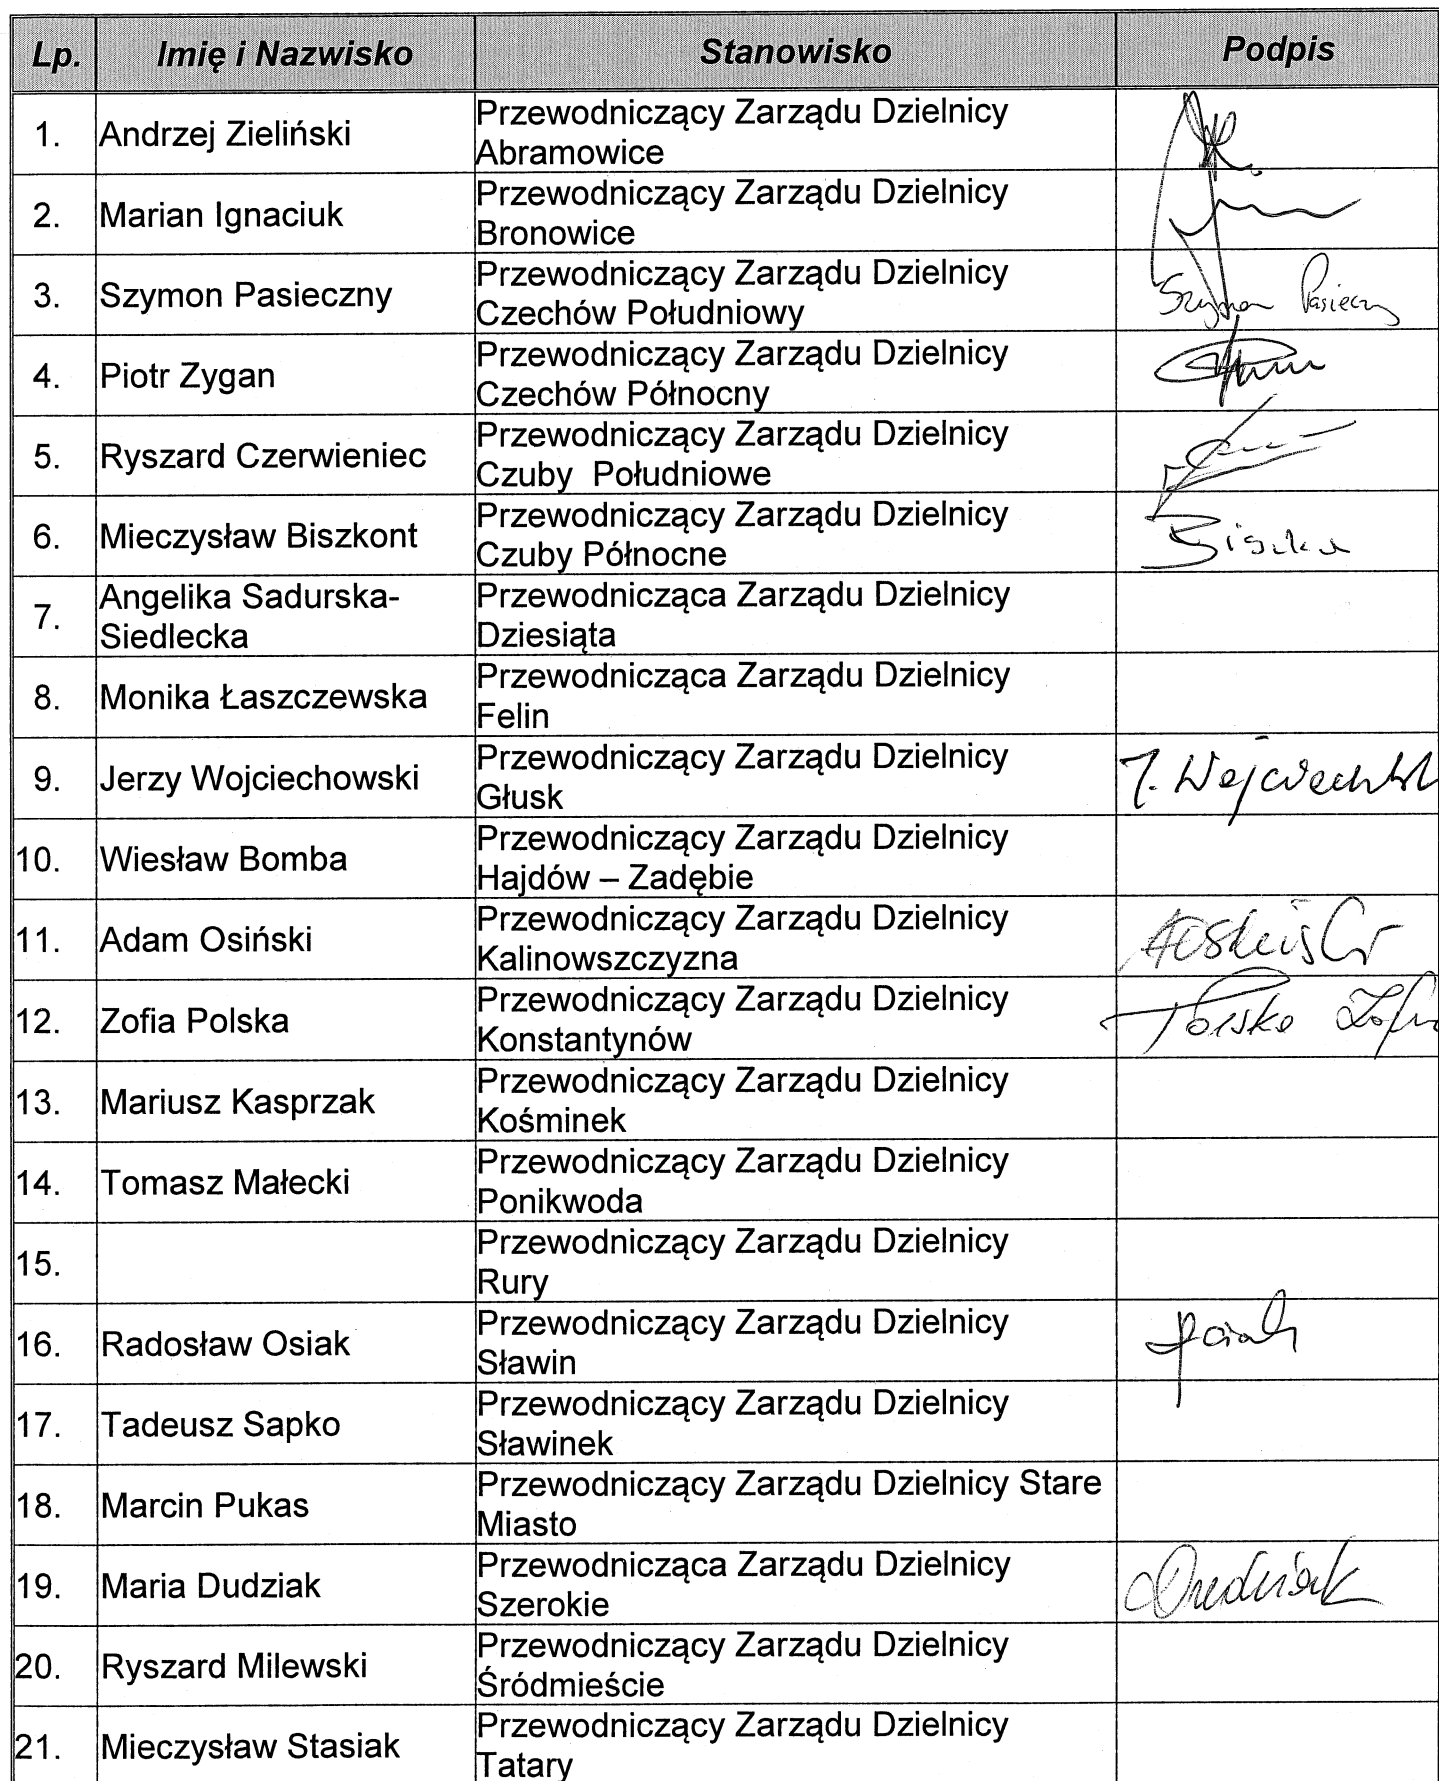 Lp. Imię i Nazwisko Stanowisko Podpis
1. Andrzej Zieliński Przewodniczący Zarządu Dzielnicy
Abramowice
2. Marian Ignaciuk Przewodniczący Zarządu Dzielnicy
Bronowice
3. Szymon Pasieczny Przewodniczący Zarządu Dzielnicy
Czechów Południowy Szymon Pasieczny
4. Piotr Zygan Przewodniczący Zarządu Dzielnicy
Czechów Północny
5. Ryszard Czerwieniec Przewodniczący Zarządu Dzielnicy
Czuby Południowe
6. Mieczysław Biszkont Przewodniczący Zarządu Dzielnicy
Czuby Północne
7. Angelika Sadurska- Przewodnicząca Zarządu Dzielnicy
Siedlecka Dziesiąta
8. Monika Łaszczewska Przewodnicząca Zarządu Dzielnicy
Felin
9. Jerzy Wojciechowski Przewodniczący Zarządu Dzielnicy
Głusk
10. Wiesław Bomba Przewodniczący Zarządu Dzielnicy
Hajdów – Zadębie
11. Adam Osiński Przewodniczący Zarządu Dzielnicy
Kalinowszczyzna
12. Zofia Polska Przewodniczący Zarządu Dzielnicy
Konstantynów Polska Zofia
13. Mariusz Kasprzak Przewodniczący Zarządu Dzielnicy
Kośminek
14. Tomasz Małecki Przewodniczący Zarządu Dzielnicy
Ponikwoda
15. Przewodniczący Zarządu Dzielnicy
Rury
16. Radosław Osiak Przewodniczący Zarządu Dzielnicy
Sławin
17. Tadeusz Sapko Przewodniczący Zarządu Dzielnicy
Sławinek
18. Marcin Pukas Przewodniczący Zarządu Dzielnicy Stare
Miasto
19. Maria Dudziak Przewodnicząca Zarządu Dzielnicy
Szerokie
20. Ryszard Milewski Przewodniczący Zarządu Dzielnicy
Śródmieście
21. Mieczysław Stasiak Przewodniczący Zarządu Dzielnicy
Tatary